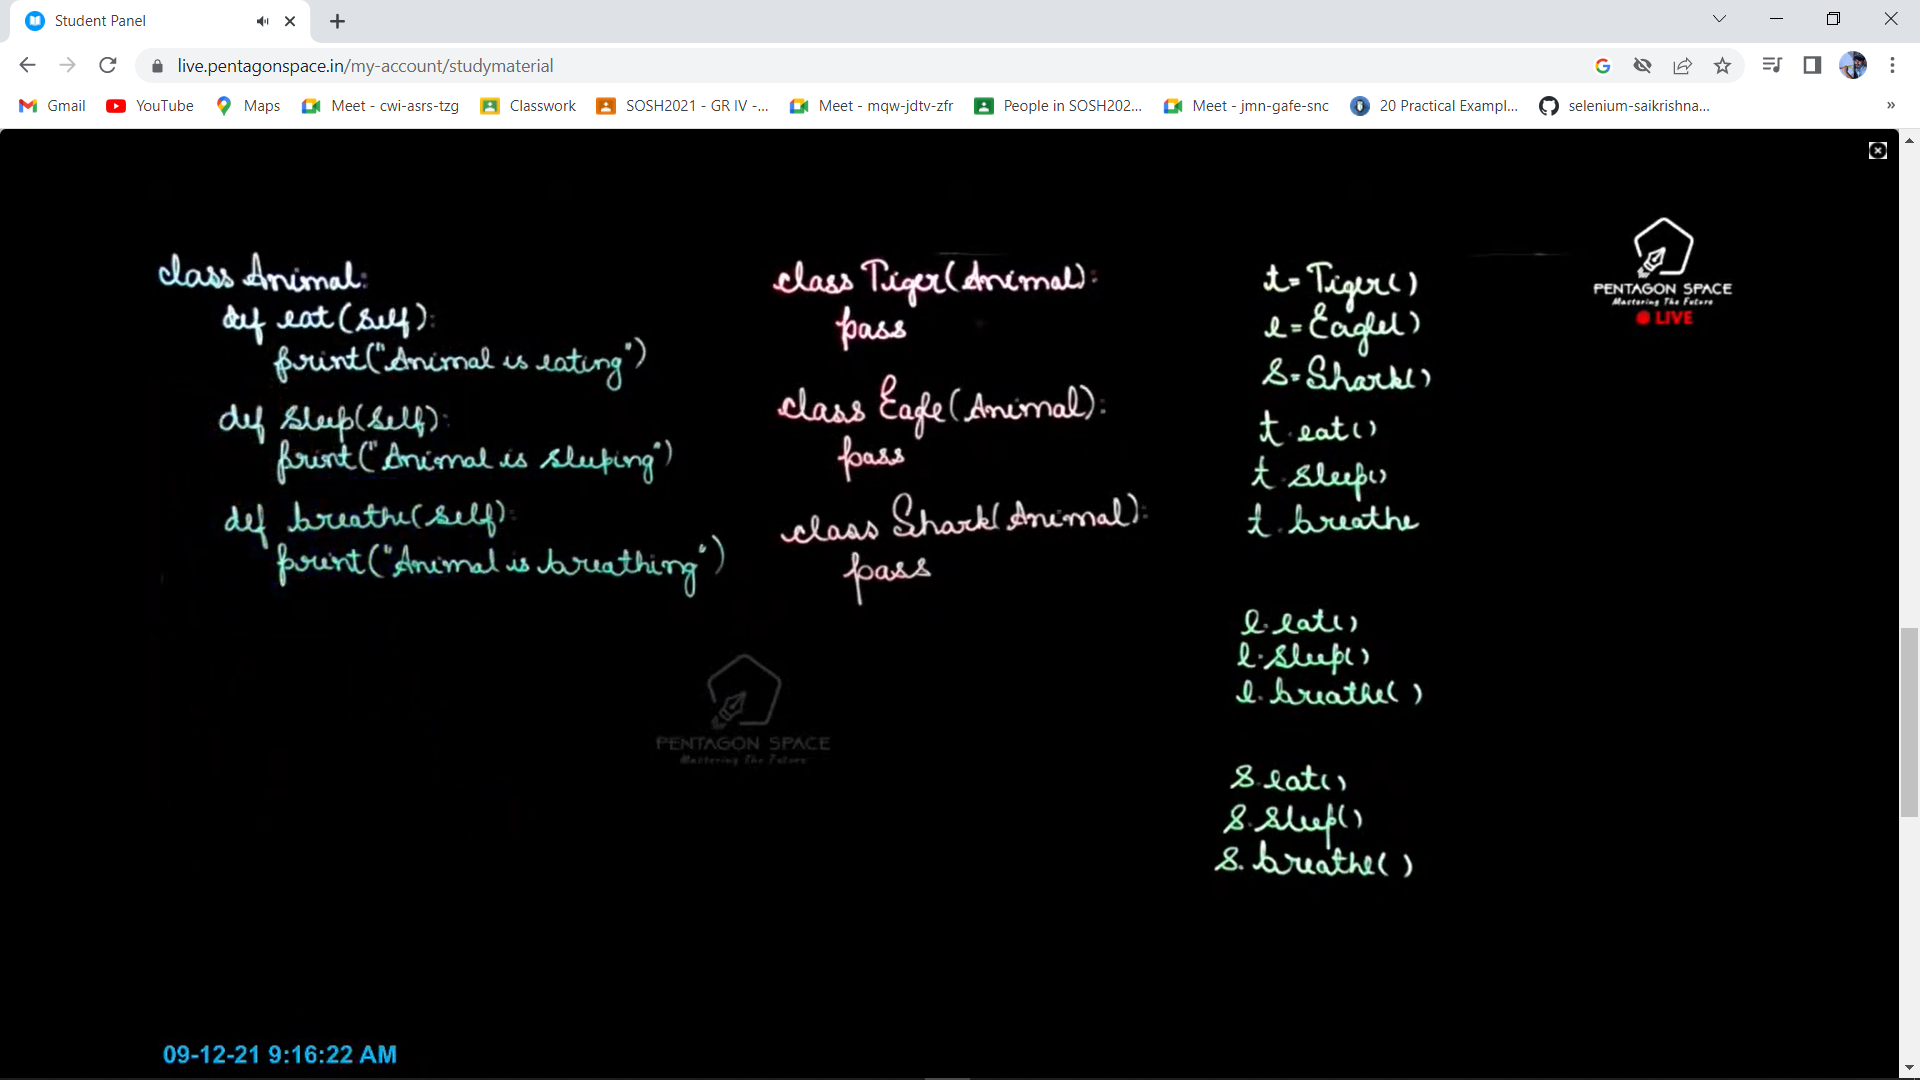 Student Panel
live.pentagonspace.in/my-account/studymaterial
Gmail YouTube Maps Meet - cwi-asrs-tzg Classwork SOSH2021 - GR IV -... Meet - mqw-jdtv-zfr People in SOSH202... Meet - jmn-gafe-snc 20 Practical Exampl... selenium-saikrishna... »
class Animal:
def eat(self):
print("Animal is eating")
def sleep(self):
print("Animal is sleeping")
def breathe(self):
print("Animal is breathing")
class Tiger(Animal):
pass
class Eagle(Animal):
pass
class Shark(Animal):
pass
t=Tiger()
e=Eagle()
S=Shark()
t.eat()
t.sleep()
t.breathe
e.eat()
e.sleep()
e.breathe()
S.eat()
S.sleep()
S.breathe()
PENTAGON SPACE
Mastering The Future
LIVE
PENTAGON SPACE
Mastering The Future
09-12-21 9:16:22 AM